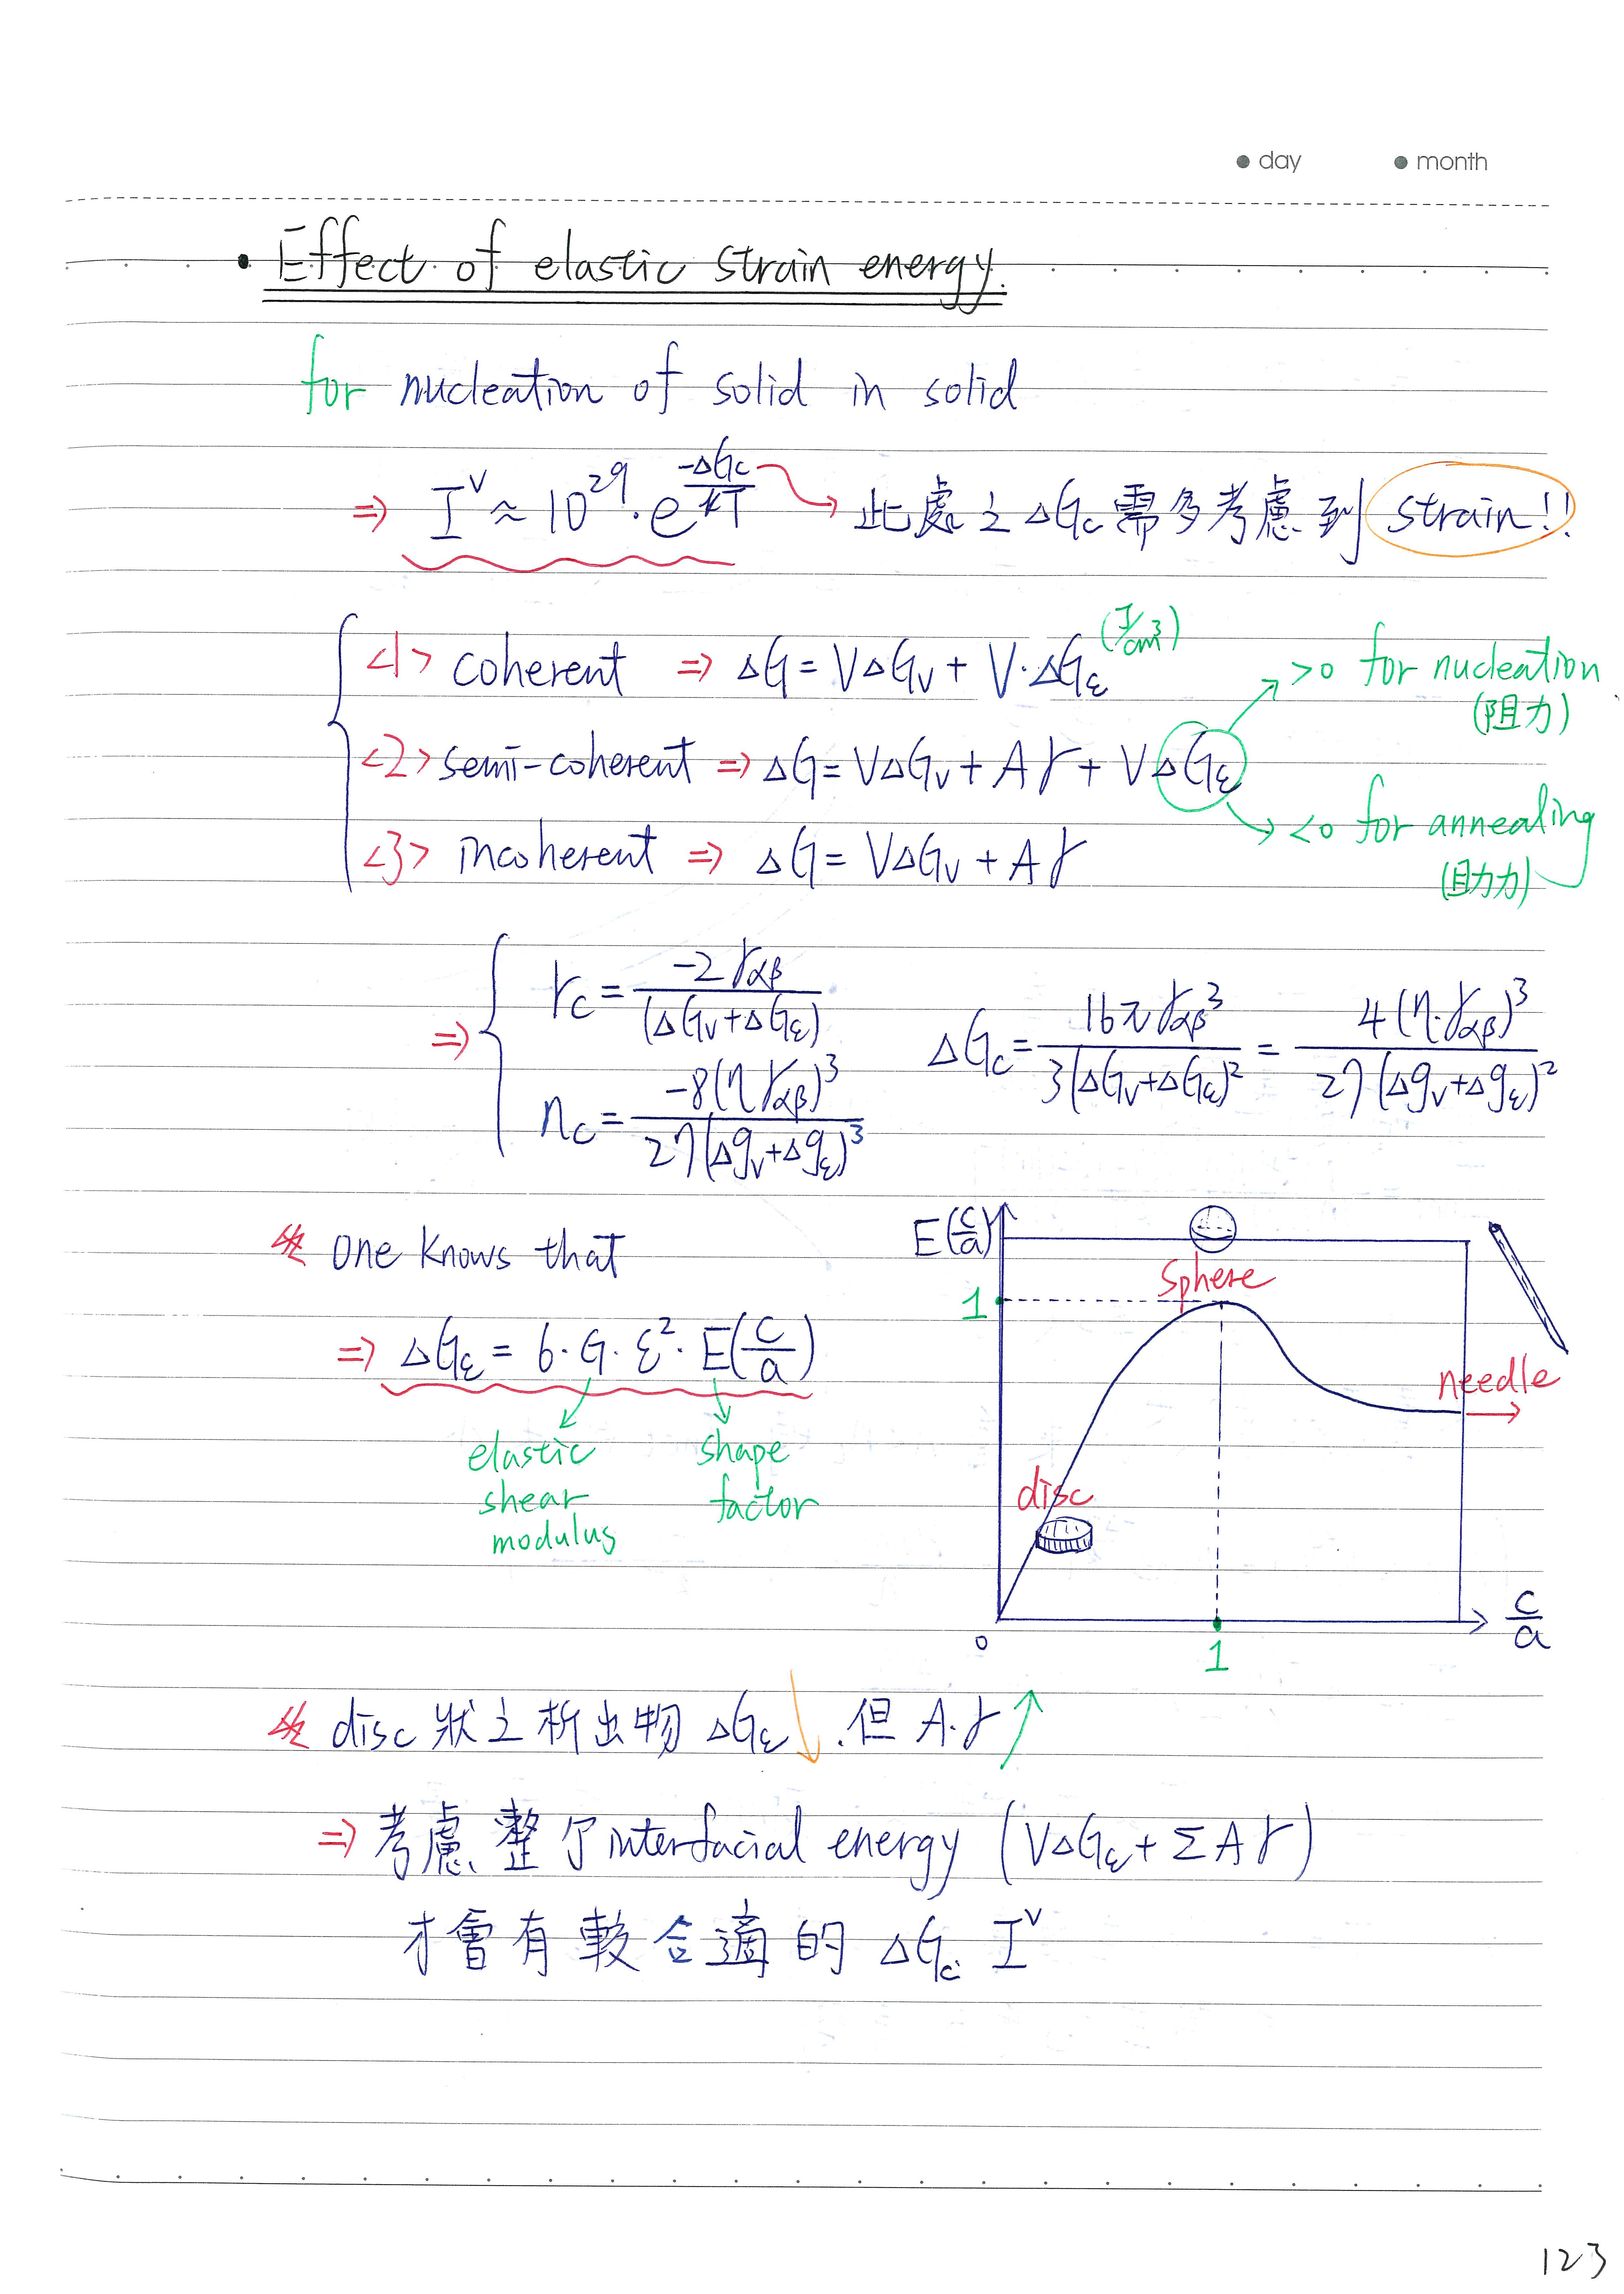 • day • month
• Effect of elastic strain energy.
for nucleation of solid in solid
⇒ I^V ≈ 10^29 · e^(-ΔGc/kT) → 此處之 ΔGc 需多考慮到 strain!!
<1> coherent ⇒ ΔG = VΔGv + V·ΔGε (J/cm³)
>0 for nucleation
(阻力)
<2> semi-coherent ⇒ ΔG = VΔGv + Aγ + VΔGε
<0 for annealing
(助力)
<3> incoherent ⇒ ΔG = VΔGv + Aγ
⇒ rc = -2γαβ / (ΔGv+ΔGε) ΔGc = 16πγαβ³ / 3(ΔGv+ΔGε)² = 4(η·γαβ)³ / 27(Δgv+Δgε)²
nc = -8(ηγαβ)³ / 27(Δgv+Δgε)³
※ one knows that
⇒ ΔGε = 6·G·ε²·E(c/a)
elastic shear modulus
shape factor
E(c/a)
1
sphere
needle →
disc
0
1
c/a
※ disc 狀之析出物 ΔGε ↓. 但 A·γ ↑
⇒ 考慮整个 interfacial energy (VΔGε + ΣAγ)
才會有較合適的 ΔGc. I^V
123